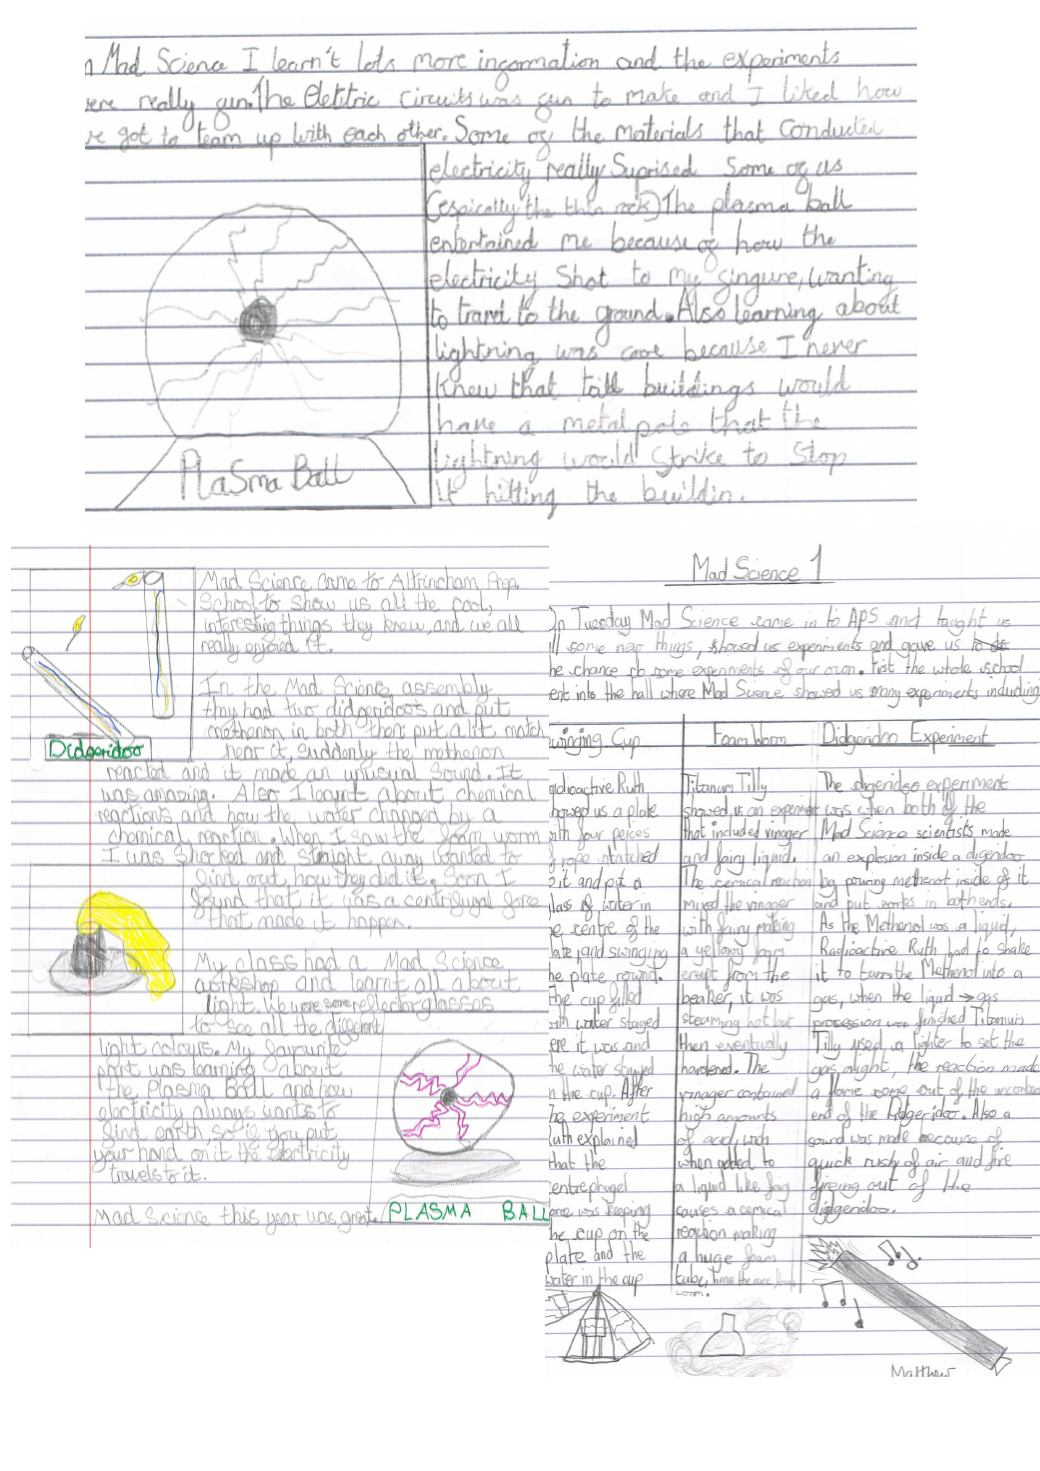 n Mad Science I learn't lots more information and the experiments
ere really fun. The Eletric Circuits was fun to make and I liked how
we got to team up with each other. Some of the materials that conducted
electricity really Suprised Some of us
(espically the thin rock) The plasma ball
entertained me because of how the
electricity Shot to my fingure, wanting
to travel to the ground. Also learning about
lightning was cool because I never
knew that tall buildings would
have a metal pole that the
lightning would Strike to Stop
it hitting the buildin.
PlaSma Ball
Mad Science came to Altrincham Prep.
School to Show us all the cool,
interesting things they knew, and we all
really enjoyed it.
In the Mad Science assembly
they had two didgeridoos and put
methanon in both then put a lit match
near it, Suddenly the methanon
Didgeridoo
reacted and it made an unusual Sound. It
was amazing. Also I learnt about chemical
reactions and how the water changed by a
chemical reaction. When I saw the foam worm
I was Shocked and straight away wanted to
find out, how they did it. Soon I
found that it was a centrifugal force
that made it happen.
My class had a Mad Science
workshop and learnt all about
light. We wore some reflector glasses
to see all the different
light colours. My favourite
part was learning about
the Plasma Ball and how
electricity always wants to
find earth, so if you put
your hand on it the electricity
travels to it.
Mad Science this year was great.
PLASMA BALL
Mad Science 1
On Tuesday Mad Science came in to APS and taught us
ll some new things, showed us experiments and gave us
he chance do some experiments of our own. First the whole school
ent into the hall where Mad Science showed us many experiments including
winging Cup
adioactive Ruth
howed us a plate
ith four peices
rope attatched
it and put a
lass of water in
he centre of the
late and swinging
he plate round.
The cup filled
ith water stayed
ere it was and
he water stayed
n the cup. After
he experiment
Ruth explained
that the
entrephugel
was keeping
he cup on the
plate and the
water in the cup
Foam Worm
Titanium Tilly
showed us an experiment
that included vinager
and fairy liquid.
The cemical reaction
mixed the vinager
with fairy making
a yellowy foam
erupt from the
beaker, it was
steaming hot but
then eventually
hardened. The
vinager contained
high amounts
of acid, wich
when added to
a liquid like fairy
causes a cemical
reaction making
a huge foam
tube, hence the name foam
worm.
Didgeridoo Experiment
The digeridoo experiment
was when both of the
Mad Science scientists made
an explosion inside a digeridoo
by pouring methenol inside of it
and put corks in both ends.
As the Methenol was a liquid,
Radioactive Ruth had to shake
it to turn the Methenol into a
gas, when the liquid → gas
procession was finished Titanium
Tilly used a lighter to set the
gas alight, the reaction made
a flame come out of the uncorked
end of the didgeridoo. Also a
sound was made because of
quick rush of air and fire
fireing out of the
diggeridoo.
Matthew